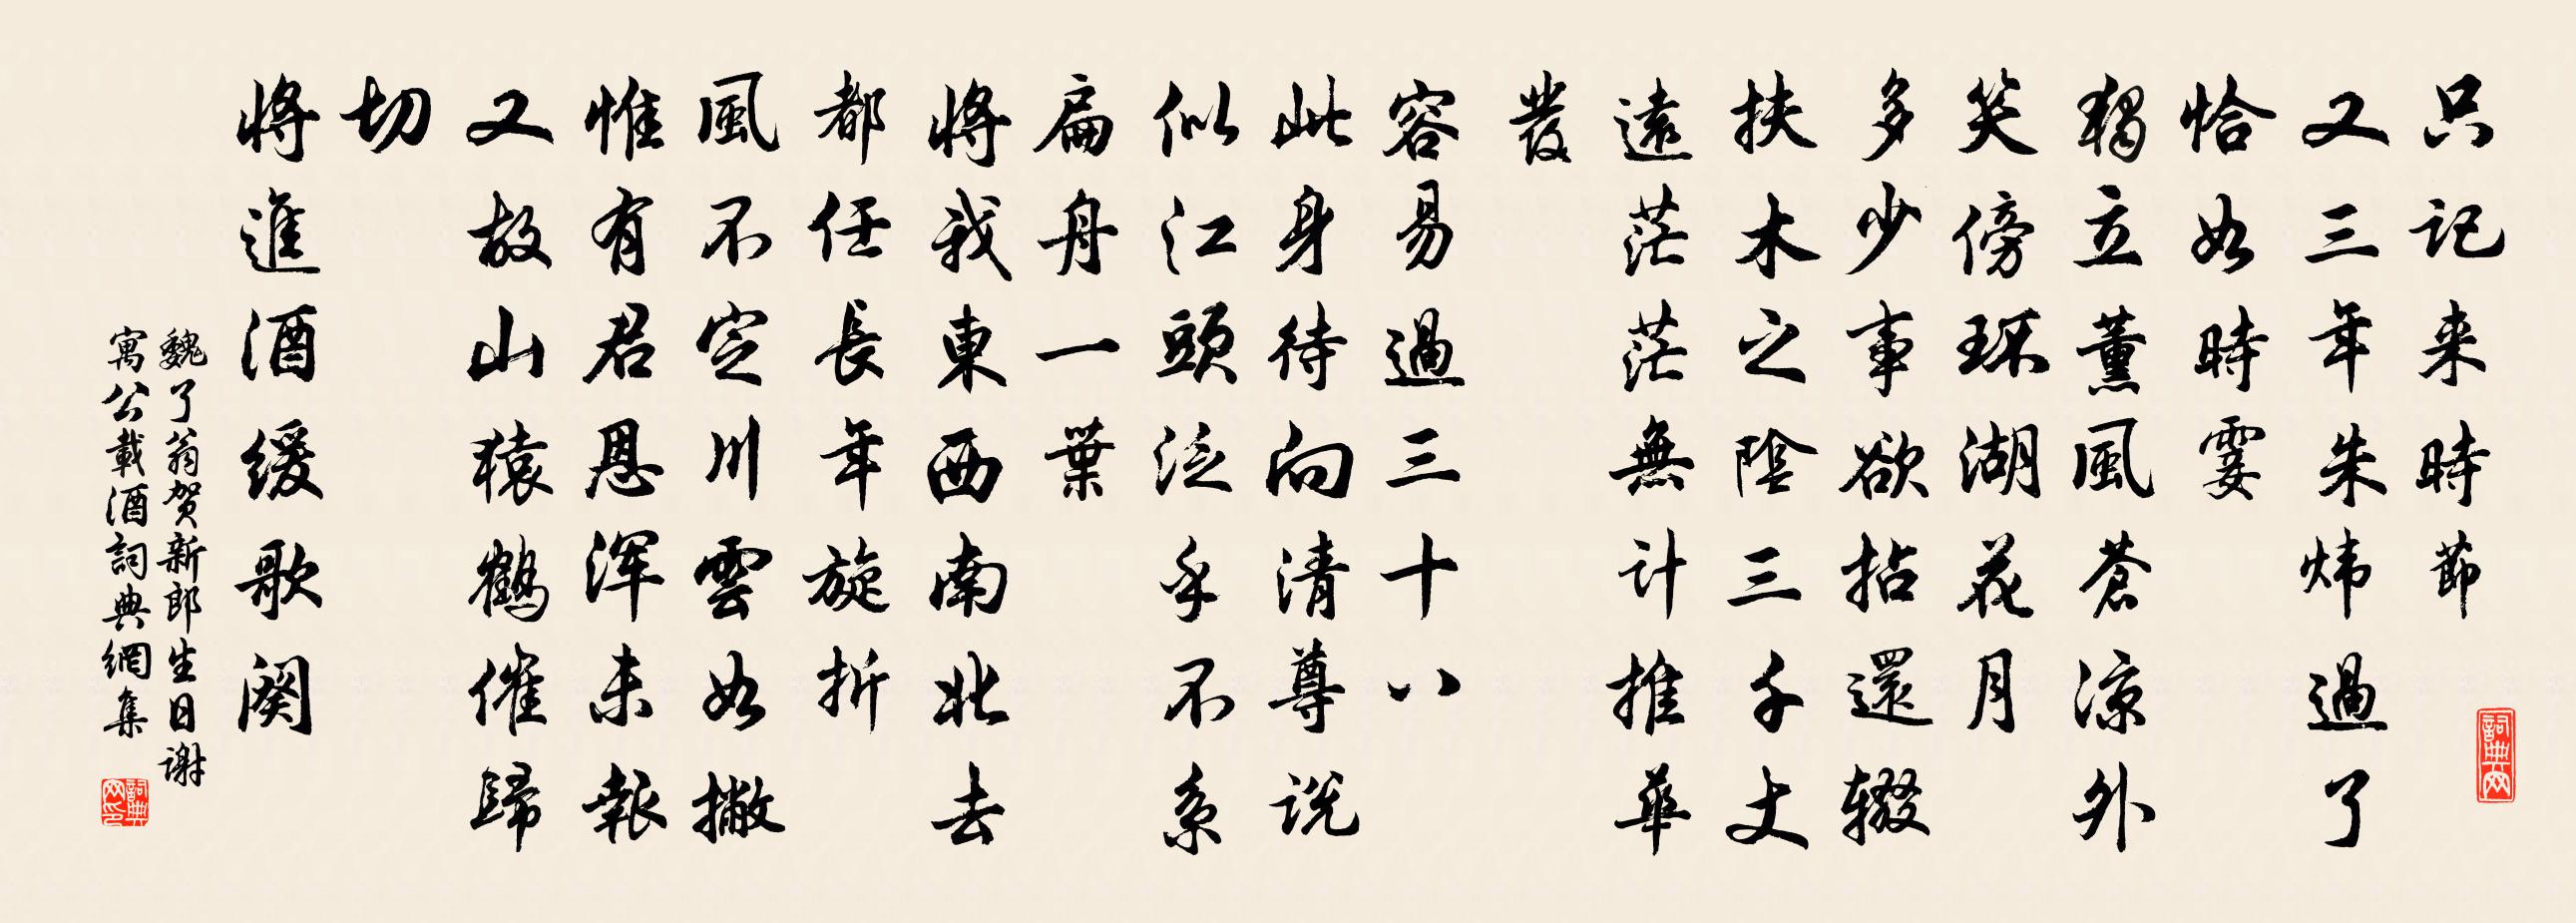 只记来時節
又三年朱炜過了
恰如時霎
獨立薰風蒼凉外
笑傍环湖花月
多少事欲拈還辍
扶木之陰三千丈
遠茫茫無計推華
發
容易過三十八
此身待向清尊说
似江頭泛乎不系
扁舟一葉
将我東西南北去
都任長年旋折
風不定川雲如撇
惟有君恩浑未報
又故山猿鶴催歸
切
将進酒缓歌闋
魏了翁贺新郎生日謝
寓公載酒詞典網集
詞典网
詞典网印